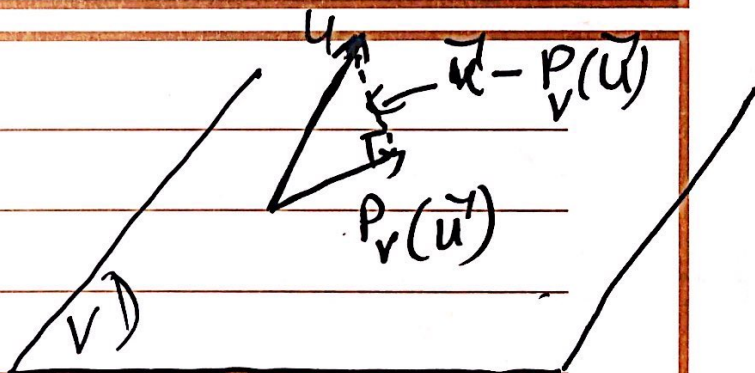 u
u⃗ - P_V(u⃗)
P_V(u⃗)
V